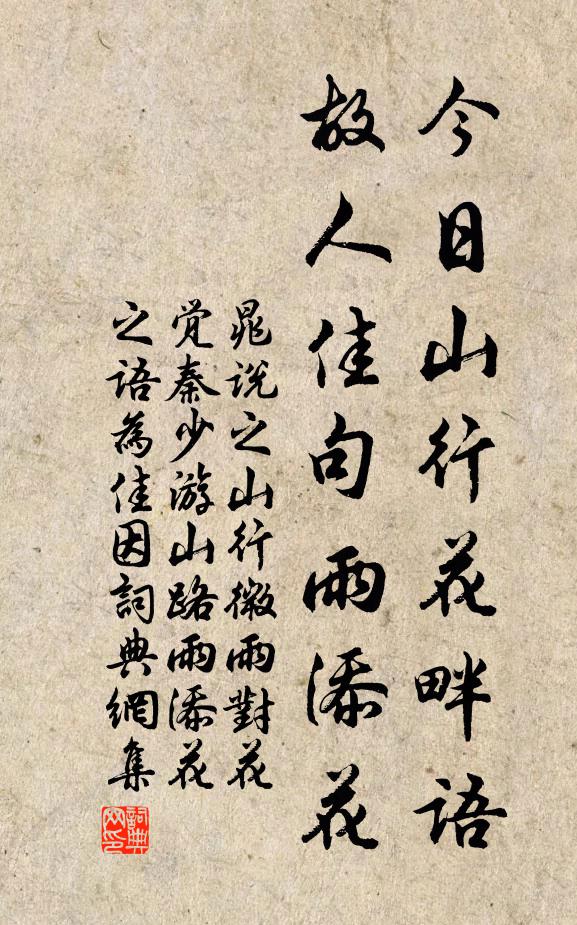 今日山行花畔語
故人佳句雨添花
晁說之山行微雨對花
覺秦少游山路雨添花
之語為佳因詞典網集
詞典
网印